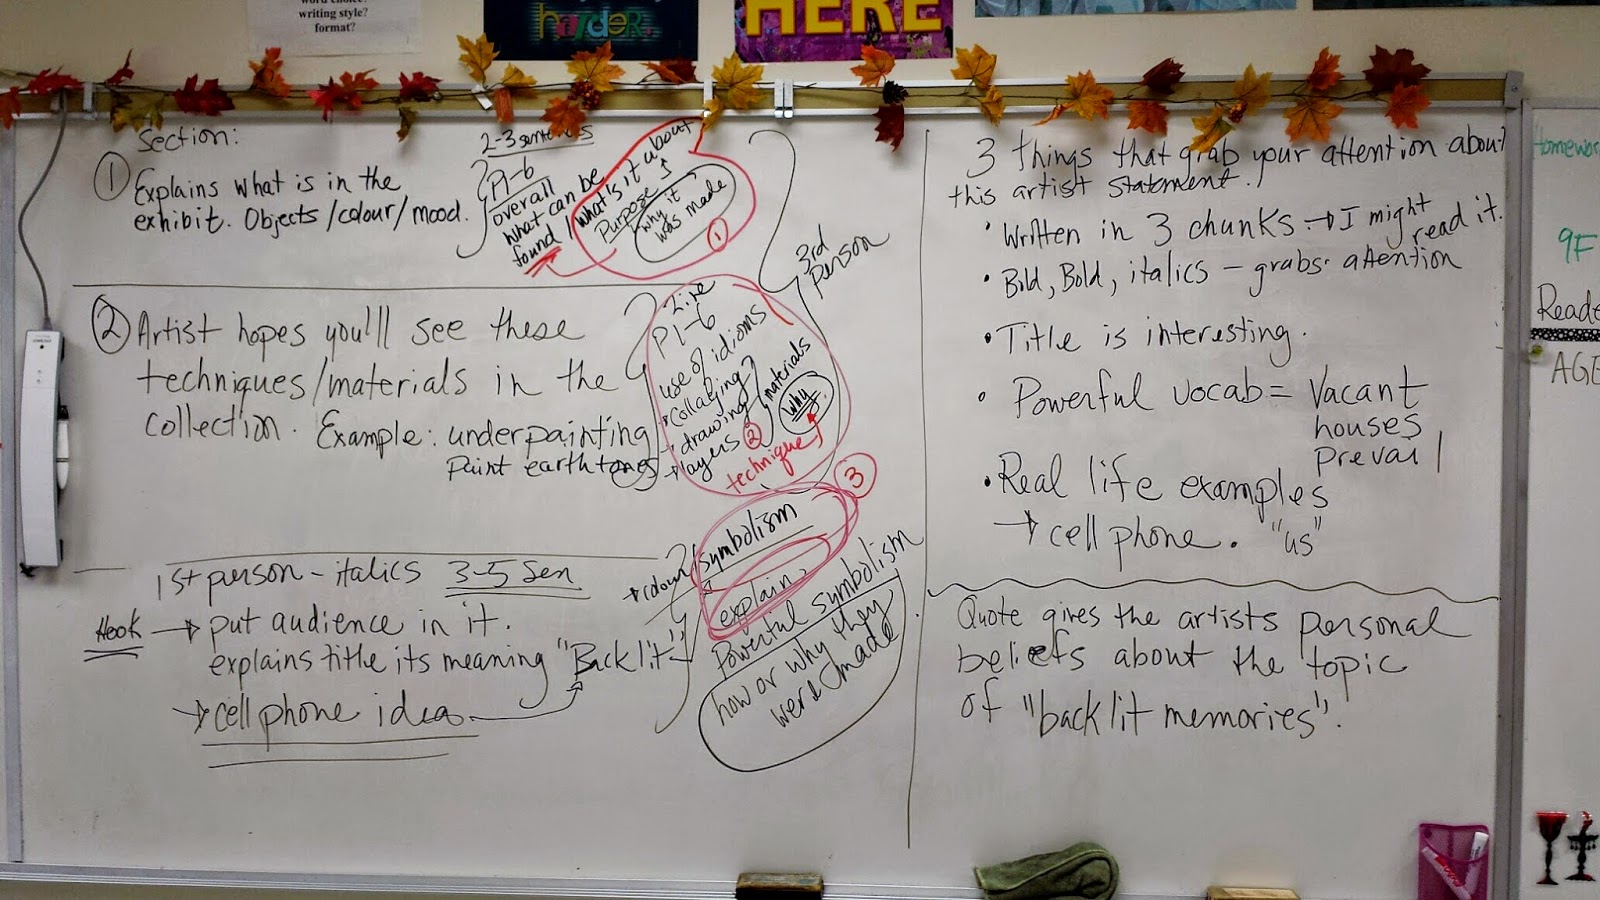 writing style?
format?
hayder
HERE
Section:
① Explains what is in the
exhibit. Objects/colour/mood.
2-3 sentences
P1-6
overall
what can be
found / what's it about
Purpose
why it
was made
①
3rd
person
② Artist hopes you'll see these
techniques/materials in the
collection. Example: underpainting
paint earthtones
2 ine
P1-6
use of idioms
• collaging
• drawing
• layers
materials
why
②
technique
③
symbolism
explain
Powerful symbolism
how or why they
were made
1st person - italics 3-5 Sen
Hook → put audience in it.
explains title its meaning "Backlit"
→ cell phone idea
3 things that grab your attention about
this artist statement.
• Written in 3 chunks → I might
read it.
• Bold, Bold, italics - grabs attention
• Title is interesting.
• Powerful vocab = Vacant
houses
prevail
• Real life examples
→ cell phone. "us"
Quote gives the artists personal
beliefs about the topic
of "backlit memories".
Homewor
9F
Reade
AGE